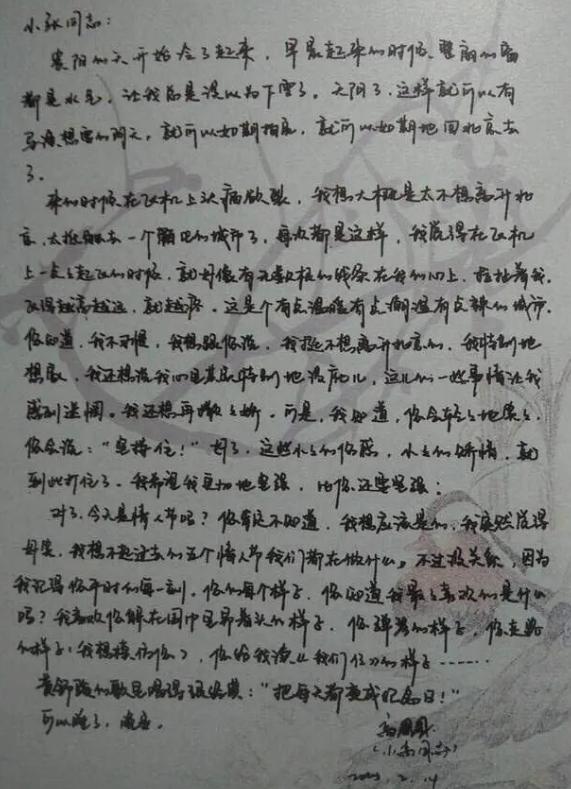 小张同志：
贵阳的天开始冷了起来，早晨起来的时候，
都是水，让我总是误以为下雪了。天阴了，这样就可以有
想要的阴天，就可以如期拍戏，就可以如期地回北京去
了。
来的时候在飞机上头痛欲裂，我想大概是太不想离开北
京，太抵触去一个陌生的城市了，每次都是这样，我觉得在飞机
上一点点起飞的时候，就好像有无数根的线系在我的心上，拉扯着我，
飞得越高越远，就越疼。这是个有点温暖有点潮湿有点辣的城市，
你知道，我不习惯，我想跟你说，我挺不想离开北京的，我特别地
想家，我还想说我心里其实特别地没底儿，这儿的一些事情让我
感到迷惘。我还想再娇。可是，我知道，你会轻轻地笑笑，
你会说："坚持住！"好了，这些小小的伤感，小小的矫情，就
到此打住了。我希望我更加地坚强，比你还要坚强；
对了，今天是情人节吗？你肯定不知道，我想应该是的，我突然觉得
好笑，我想不起过去的五个情人节我们都在做什么。不过没关系，因为
我记得你平时的每一刻，你的每个样子，你知道我最最喜欢的是什么
吗？我喜欢你躲在围巾里耷着头的样子，你弹琴的样子，你走路
的样子（我想模仿你），你给我读《我们仨》的样子……
黄舒骏的歌里唱得很给："把每天都变成纪念日！"
可以睡了，晚安。
（小同志）
2.14